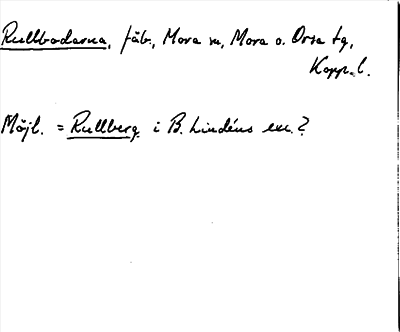 Rullbodarna, fäb., Mora sn, Mora o. Orsa tg,
Kopp. l.
Möjl. = Rullberg i B. Lindéns exc.?